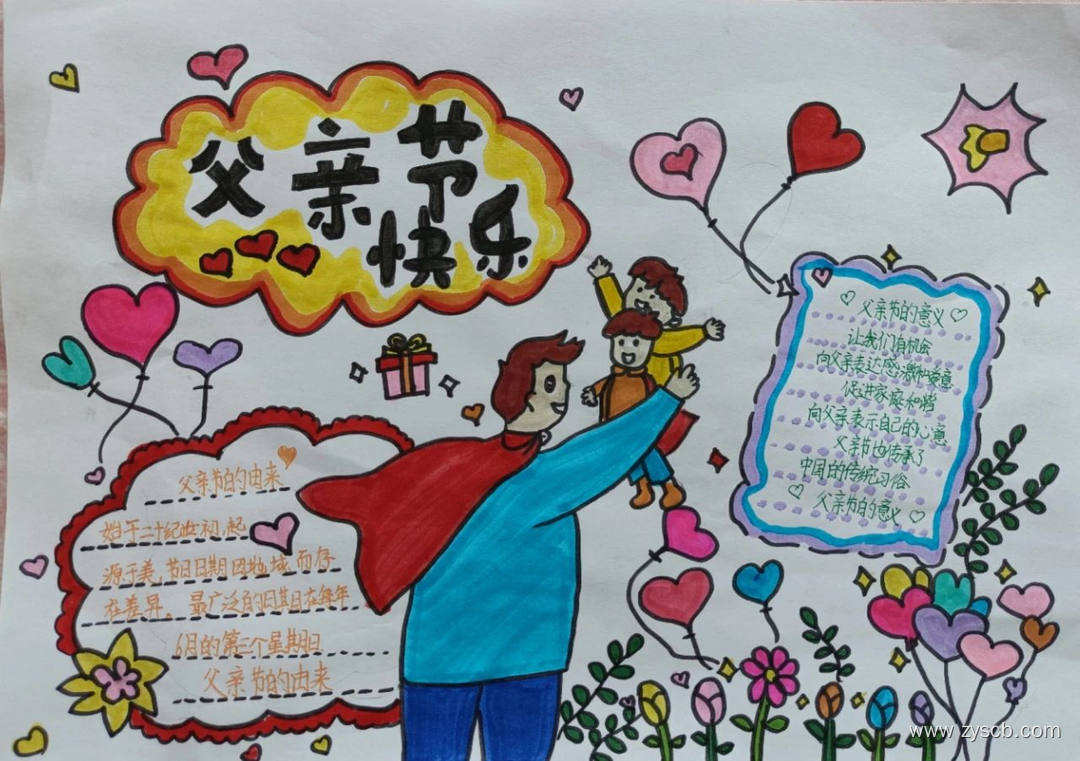 父亲节
快乐
父亲节的由来
始于二十纪世初,起
源于美,节日日期因地域而存
在差异。最广泛的日期在每年
6月的第三个星期日
父亲节的由来
父亲节的意义
让我们有机会
向父亲表达感激和爱意
促进家庭和谐
向父亲表示自己的心意
父亲节也传承了
中国的传统习俗
父亲节的意义
www.zyscb.com